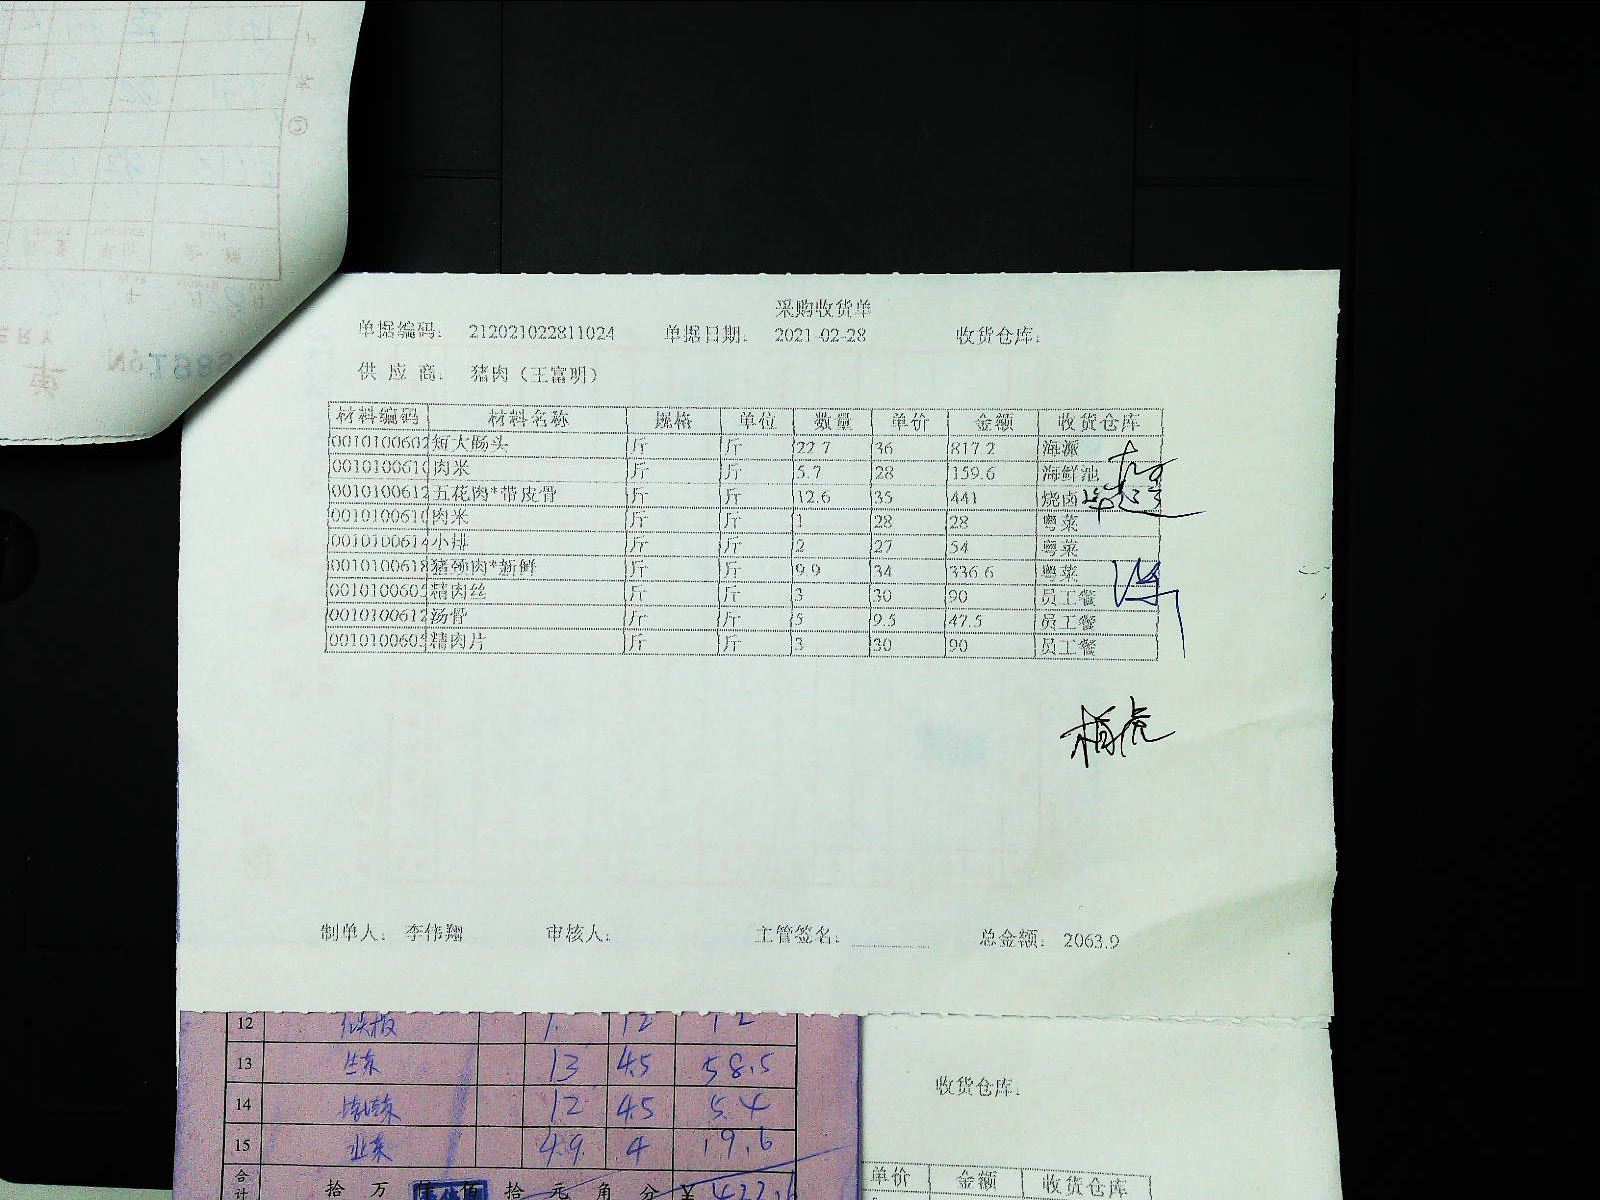 采购收货单
单据编码： 212021022811024 单据日期： 2021-02-28 收货仓库：
供 应 商： 猪肉（王富明）
材料编码 材料名称 规格 单位 数量 单价 金额 收货仓库
0010100602 短大肠头 斤 斤 22.7 36 817.2 海派
0010100610 肉米 斤 斤 5.7 28 159.6 海鲜池
0010100612 五花肉*带皮骨 斤 斤 12.6 35 441 烧卤
0010100610 肉米 斤 斤 1 28 28 粤菜
0010100614 小排 斤 斤 2 27 54 粤菜
0010100618 猪颈肉*新鲜 斤 斤 9.9 34 336.6 粤菜
0010100605 精肉丝 斤 斤 3 30 90 员工餐
0010100612 汤骨 斤 斤 5 9.5 47.5 员工餐
0010100605 精肉片 斤 斤 3 30 90 员工餐
制单人： 李伟翔 审核人： 主管签名： 总金额： 2063.9
12 1 12 12
13 13 4.5 58.5
14 12 4.5 5.4
15 4.9 4 19.6
合计 拾 万 仟 佰 拾 元 角 分 ￥
收货仓库：
单价 金额 收货仓库